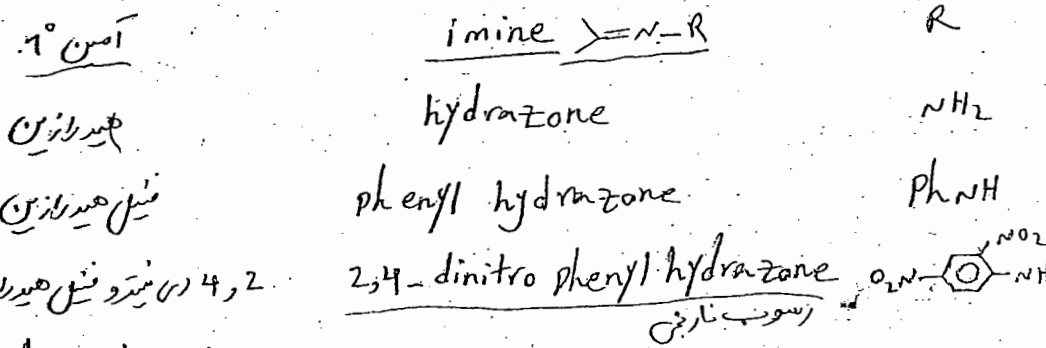 آمین 1° imine >=N-R R
هیدرازین hydrazone NH2
فنیل هیدرازین phenyl hydrazone PhNH
2,4 دی نیترو فنیل هیدرا 2,4-dinitro phenyl hydrazone O2N- NO2 -NH
رسوب نارنجی